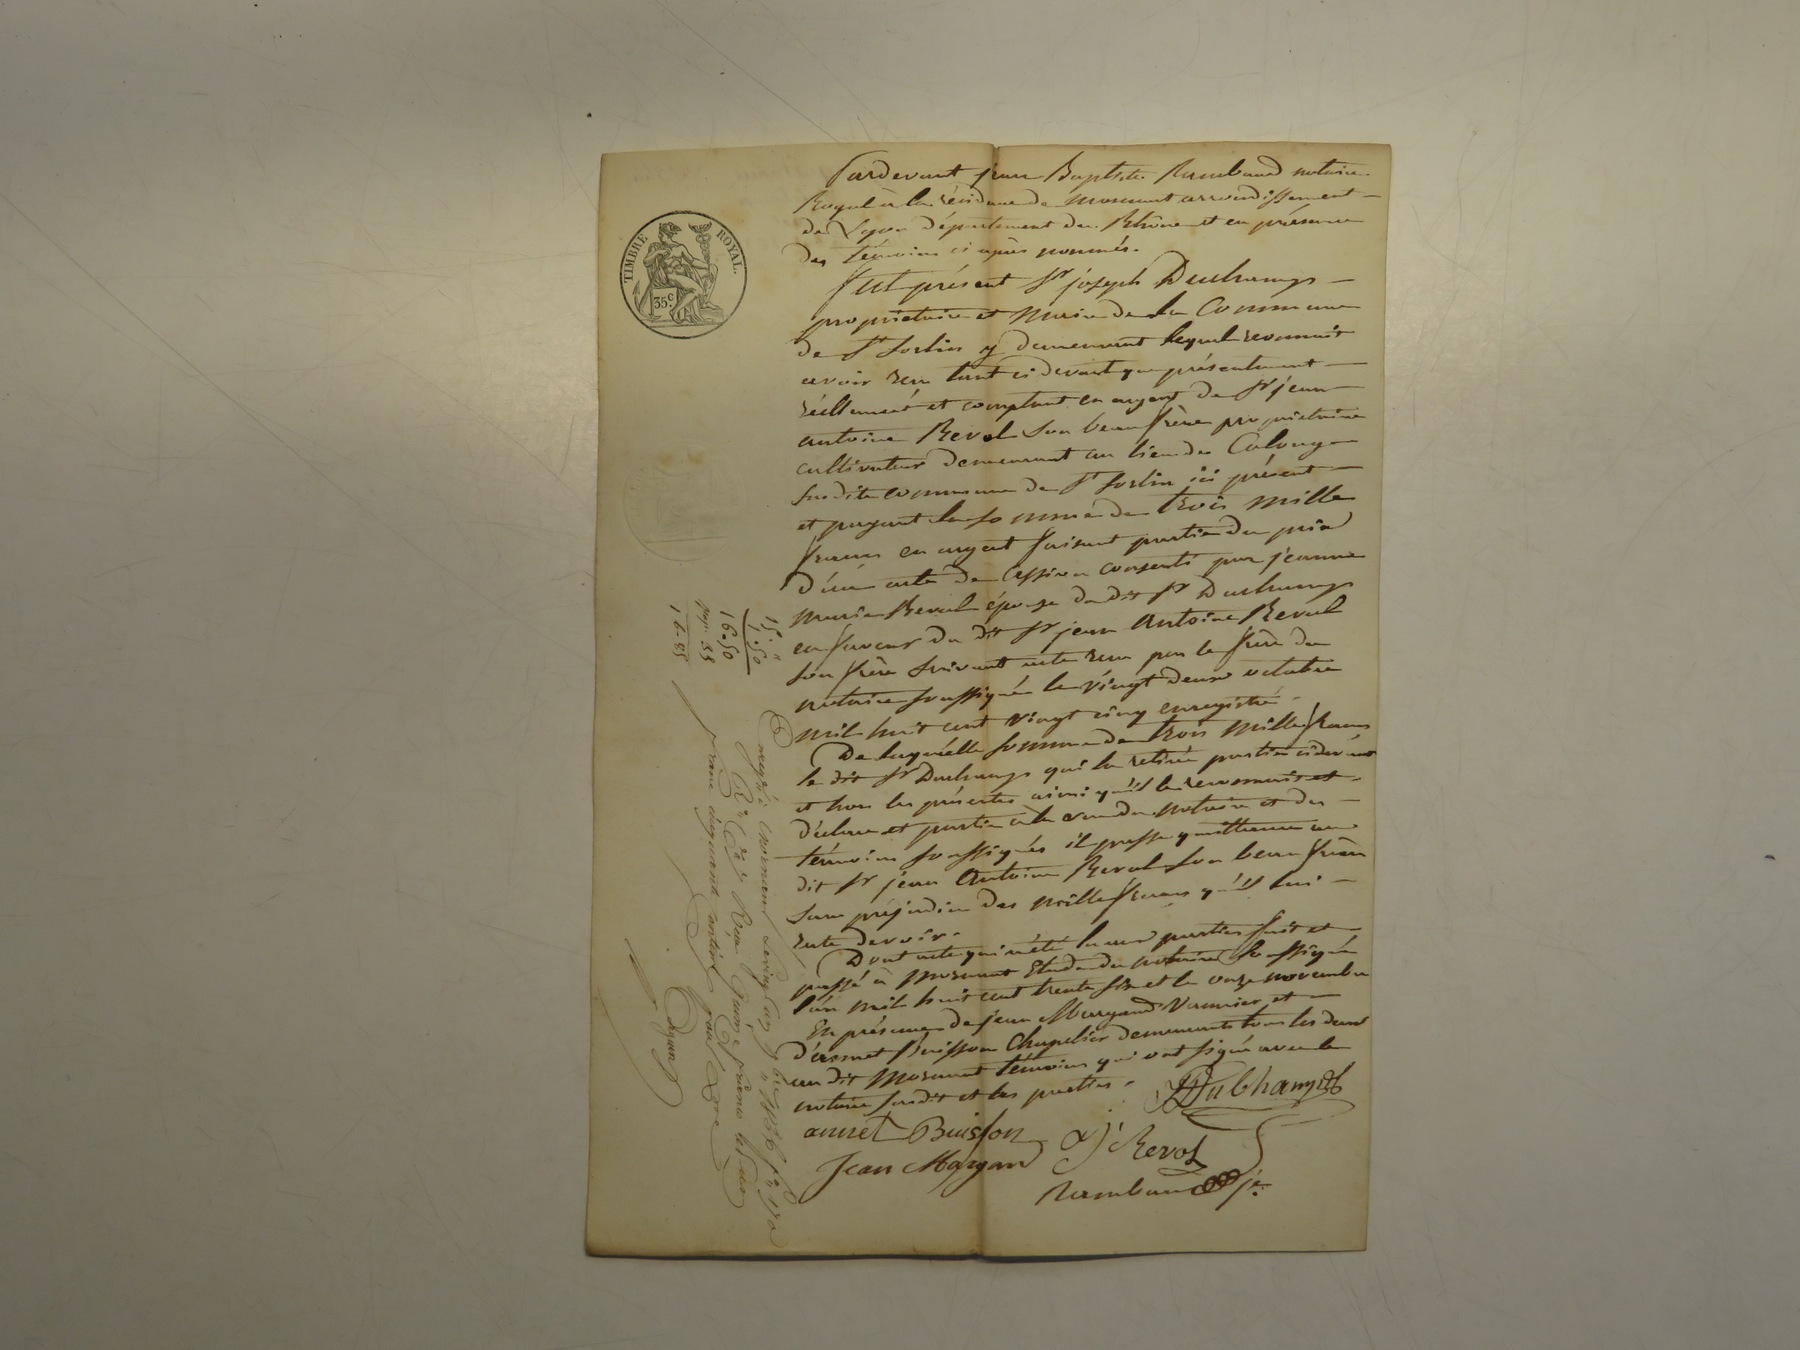 Pardevant jean Baptiste Rambaud notaire
Royal à la résidence de mornant arrondissement
de Lyon département du Rhône et en présence
des témoins ci après nommés.
Fut présent Sr joseph Duchamps
propriétaire et Maire de la Commune
de St Sorlin y demeurant lequel reconnoit
avoir reçu tant ci devant que présentement
réellement et comptant en argent de Sr jean
antoine Revol son beau frère propriétaire
cultivateur demeurant au lieu de
susdite commune de St Sorlin ici présent
et payant la somme de trois mille
francs en argent faisant partie du prix
d'un acte de cession consenti par jeanne
marie Revol épouse du dit Sr Duchamps
en faveur du dit Sr jean Antoine Revol
son frère suivant acte reçu par le père du
notaire soussigné le vingt deux octobre
mil huit cent vingt cinq enregistré
De laquelle somme de trois mille francs
le dit Sr Duchamps qui la retirée partie cidevant
et hors les présentes ainsi qu'il le reconnoit et
déclare et partie à la vue du notaire et des
témoins soussignés il passe quittance au
dit Sr jean Antoine Revol son beau frère
sans préjudice des mille francs qu'il lui
reste devoir.
Dont acte qui a été lu aux parties fait et
passé à mornant Etude du notaire soussigné
l'an mil huit cent trente six et le onze novembre
En présence de jean Margand Vannier et
d'annet Buisson Chapelier demeurants tous les deux
au dit Mornant témoins qui ont signé avec le
notaire susdit et les parties.
JDubhamps
annet Buisson
aj Revol
Jean Margand
Rambaud je.
TIMBRE ROYAL.
35 c.
15 "
1.50
16.50
pap. 35
16.85
Enregistré à mornant le vingt un 9bre 1836 fo 170
Ro Ce Reçu quinze francs et un
franc cinquante centimes pour